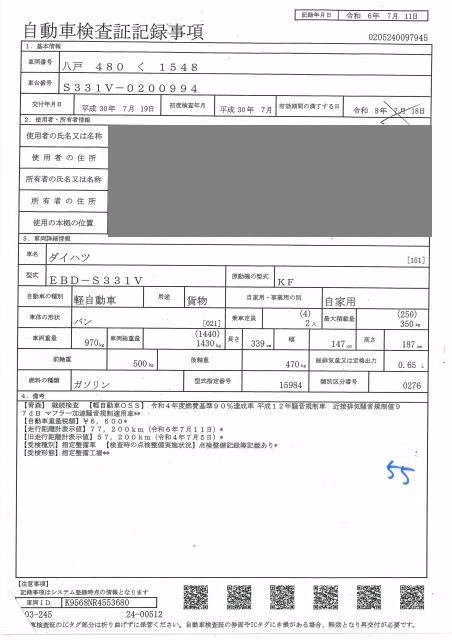 記録年月日 令和 6年 7月 11日
自動車検査証記録事項
0205240097945
1. 基本情報
車両番号 八戸 480 く 1548
車台番号 S331V-0200994
交付年月日 平成 30年 7月 19日 初度検査年月 平成 30年 7月 有効期間の満了する日 令和 8年 7月 18日
2. 使用者・所有者情報
使用者の氏名又は名称
使用者の住所
所有者の氏名又は名称
所有者の住所
使用の本拠の位置
3. 車両詳細情報
車名 ダイハツ [151]
型式 EBD-S331V 原動機の型式 KF
自動車の種別 軽自動車 用途 貨物 自家用・事業用の別 自家用
車体の形状 バン [021] 乗車定員 (4) 2人 最大積載量 (250) 350kg
車両重量 970kg 車両総重量 (1440) 1430kg 長さ 339cm 幅 147cm 高さ 187cm
前軸重 500kg 後軸重 470kg 総排気量又は定格出力 0.65 L
燃料の種類 ガソリン 型式指定番号 15984 類別区分番号 0276
4. 備考
【青森】 継続検査 【軽自動車OSS】 令和4年度燃費基準90%達成車 平成12年騒音規制車 近接排気騒音規制値9
7dB マフラー加速騒音規制適用車**
【自動車重量税額】¥6,600*
【走行距離計表示値】77,200km(令和6年7月11日)*
【旧走行距離計表示値】57,200km(令和4年7月5日)*
【受検種別】指定整備車 【検査時の点検整備実施状況】点検整備記録簿記載あり*
【受検形態】指定整備工場**
55
【注意事項】
記録事項はシステム登録時点の情報となります
車両ID K9568NR4553680
03-245 24-00512
車検査証のICタグ部分は折り曲げずに保管ください。自動車検査証の券面やICタグにき損がある場合、無効となり再交付が必要です。